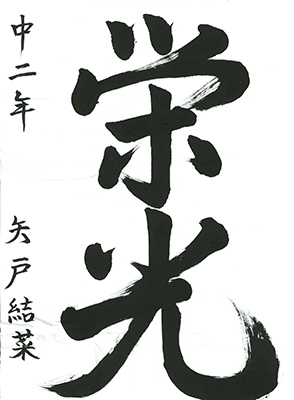 栄光
中二年 矢戸結菜